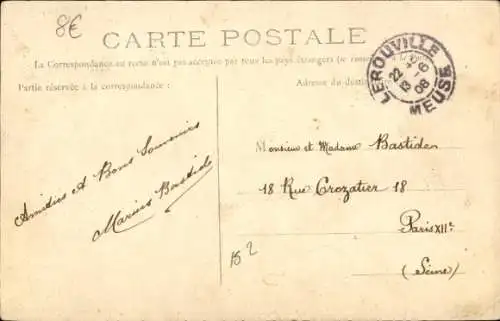 8€
CARTE POSTALE
La Correspondance au recto n'est pas acceptée par tous les pays étrangers (se
Partie réservée à la correspondance :
Adresse du
LEROUVILLE
22
13
08
MEUSE
Amitiés et Bons Souvenirs
Marius Bastid
Monsieur et Madame Bastide
18 Rue Crozatier 18
Paris XIIe
(Seine)